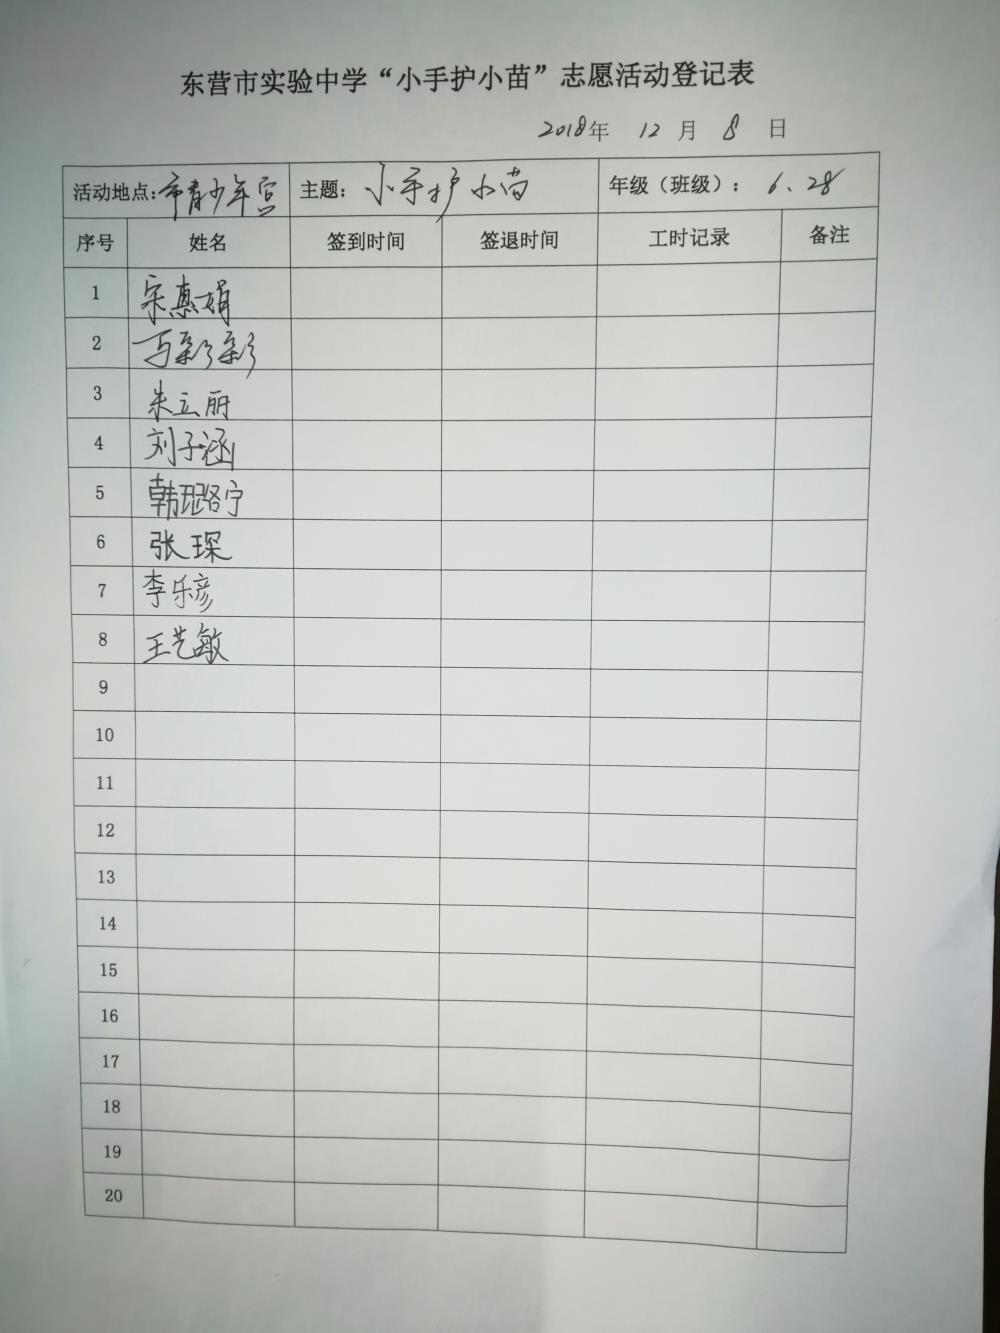 东营市实验中学“小手护小苗”志愿活动登记表
2018年 12 月 8 日
活动地点: 市青少年宫 主题: 小手护小苗 年级（班级）: 6.28
序号 姓名 签到时间 签退时间 工时记录 备注
1 宋惠娟
2 马彩彩
3 朱立丽
4 刘子涵
5 韩璐宁
6 张琛
7 李乐彦
8 王艺敏
9
10
11
12
13
14
15
16
17
18
19
20